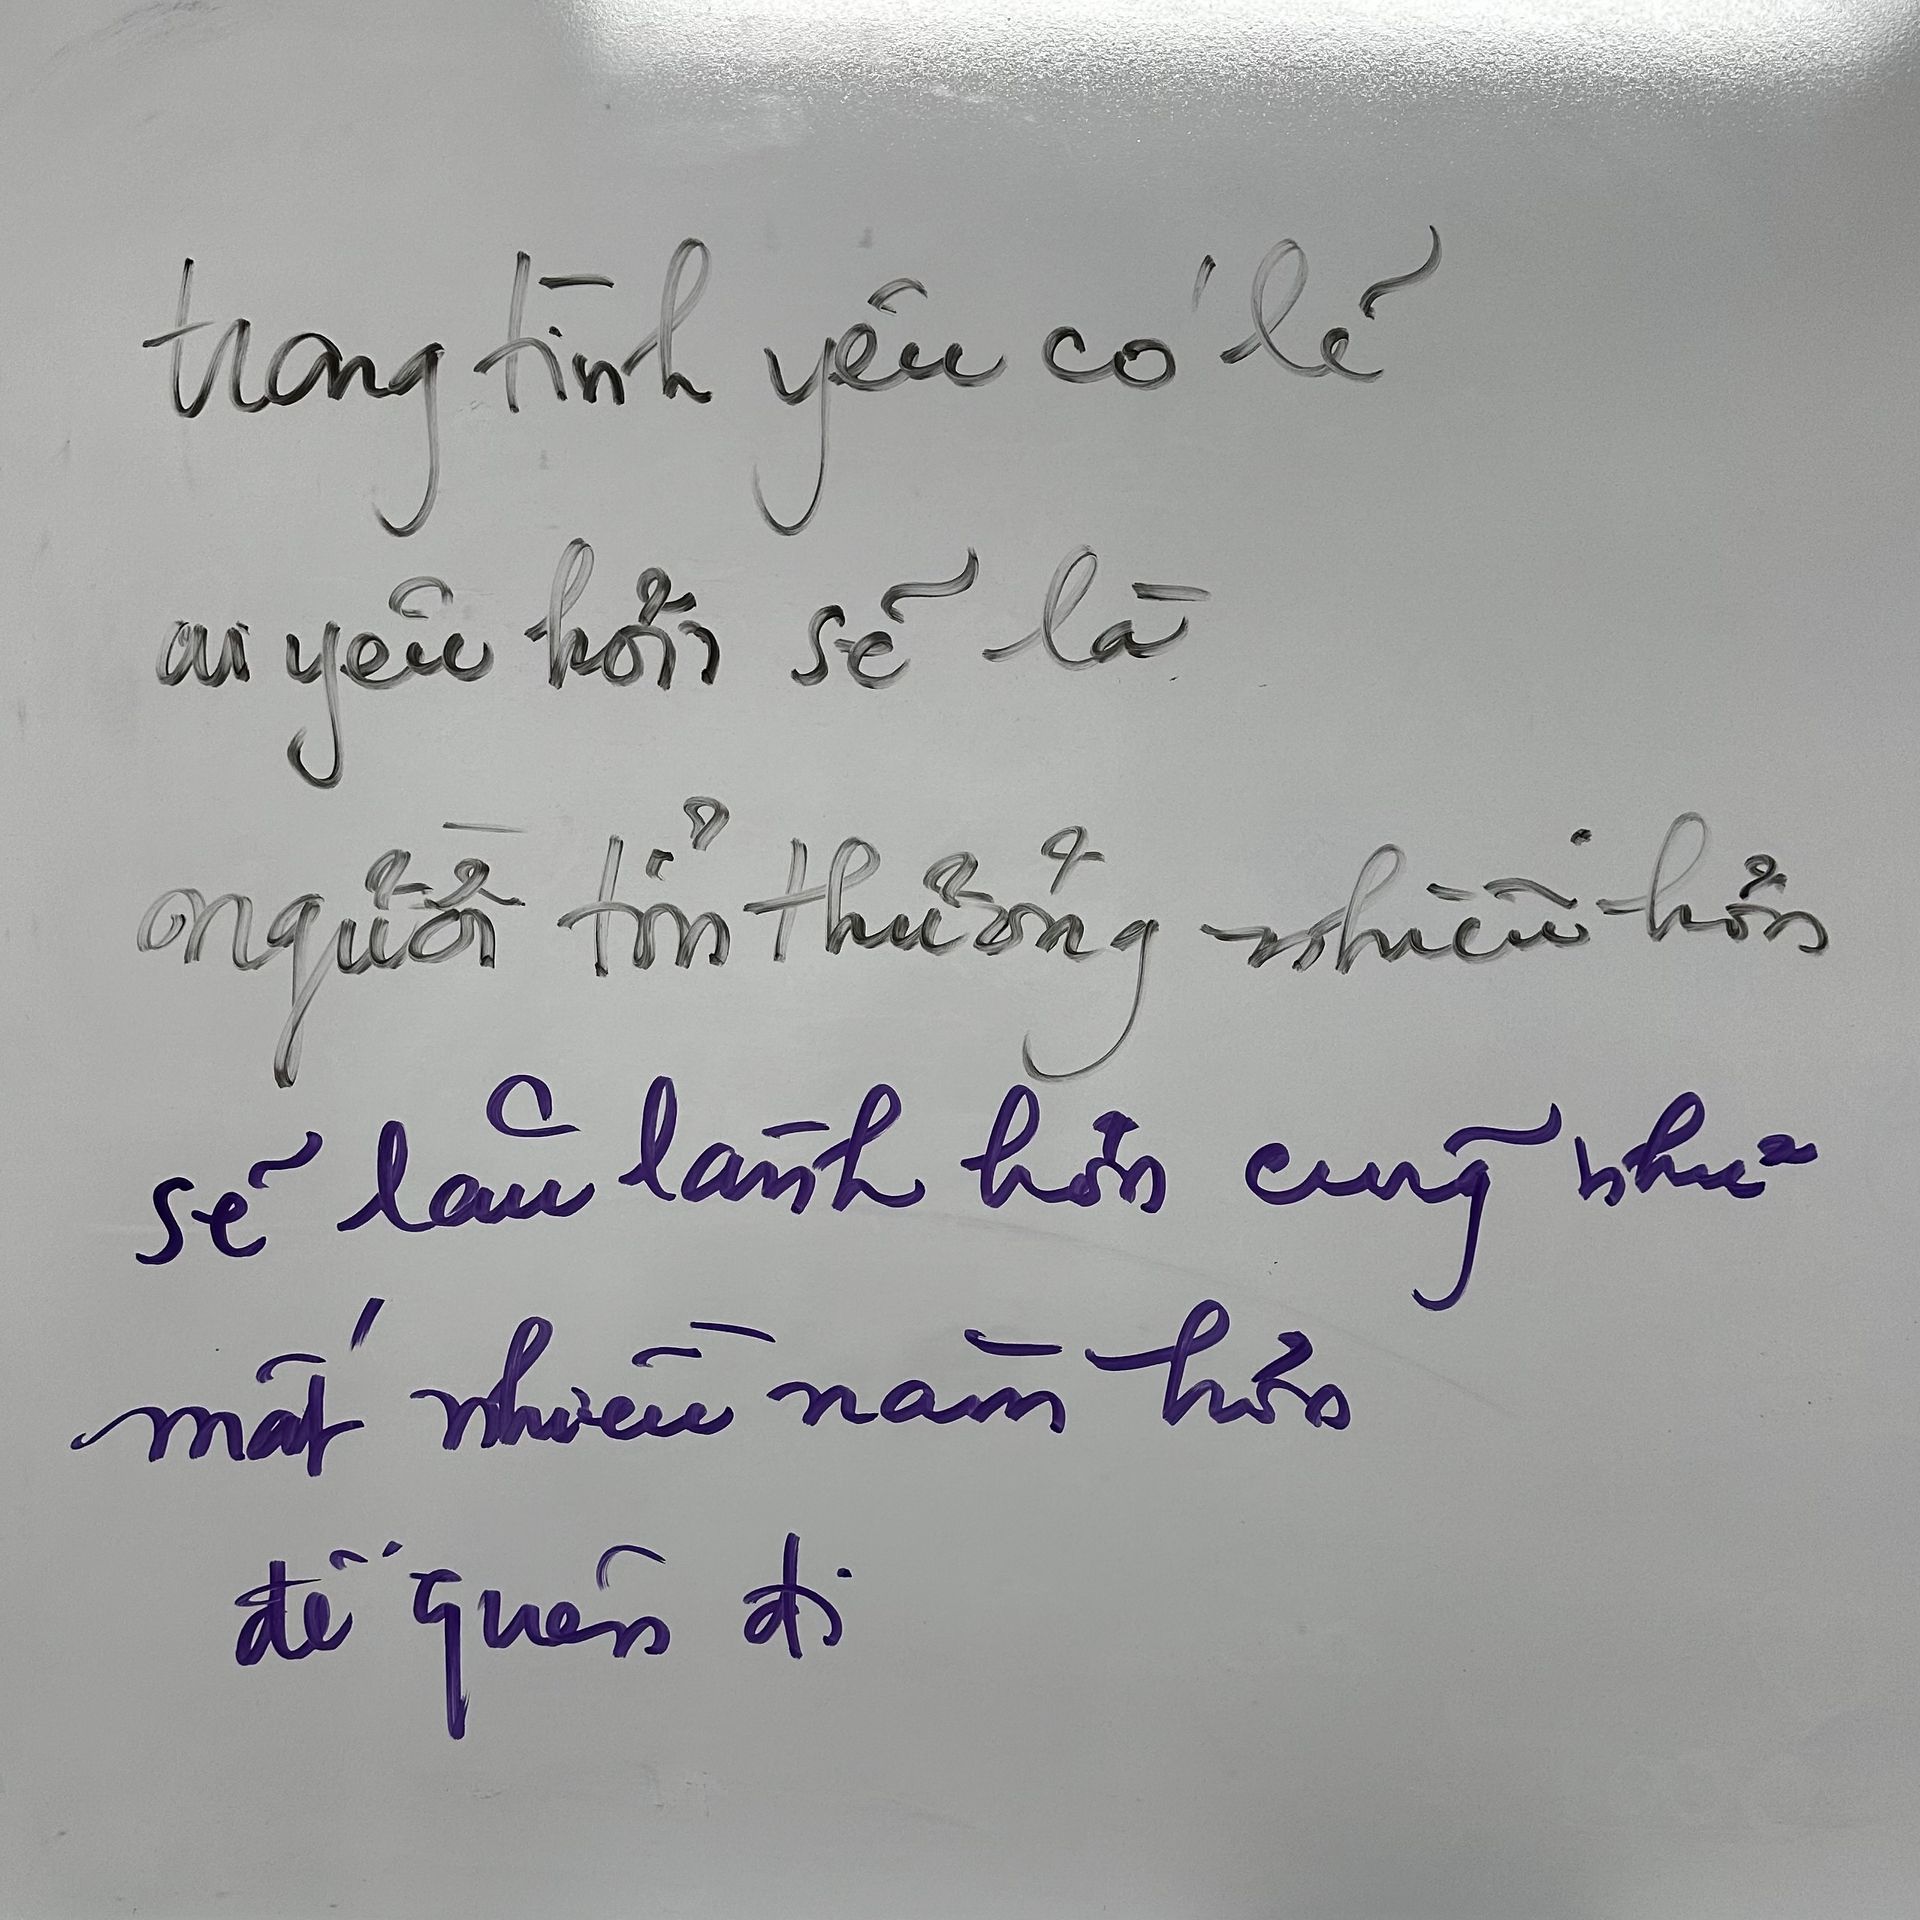 trong tình yêu có lẽ
ai yêu hơn sẽ là
người tổn thương nhiều hơn
sẽ lâu lành hơn cũng như
mất nhiều năm hơn
để quên đi